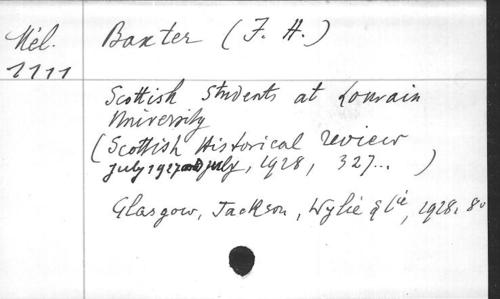 Mél. Baxter (J. H.)
1111
Scottish Students at Louvain
University
(Scottish Historical Review
July 1927 and July, 1928, 327... )
Glasgow, Jackson, Wylie & Cie, 1928. 8°